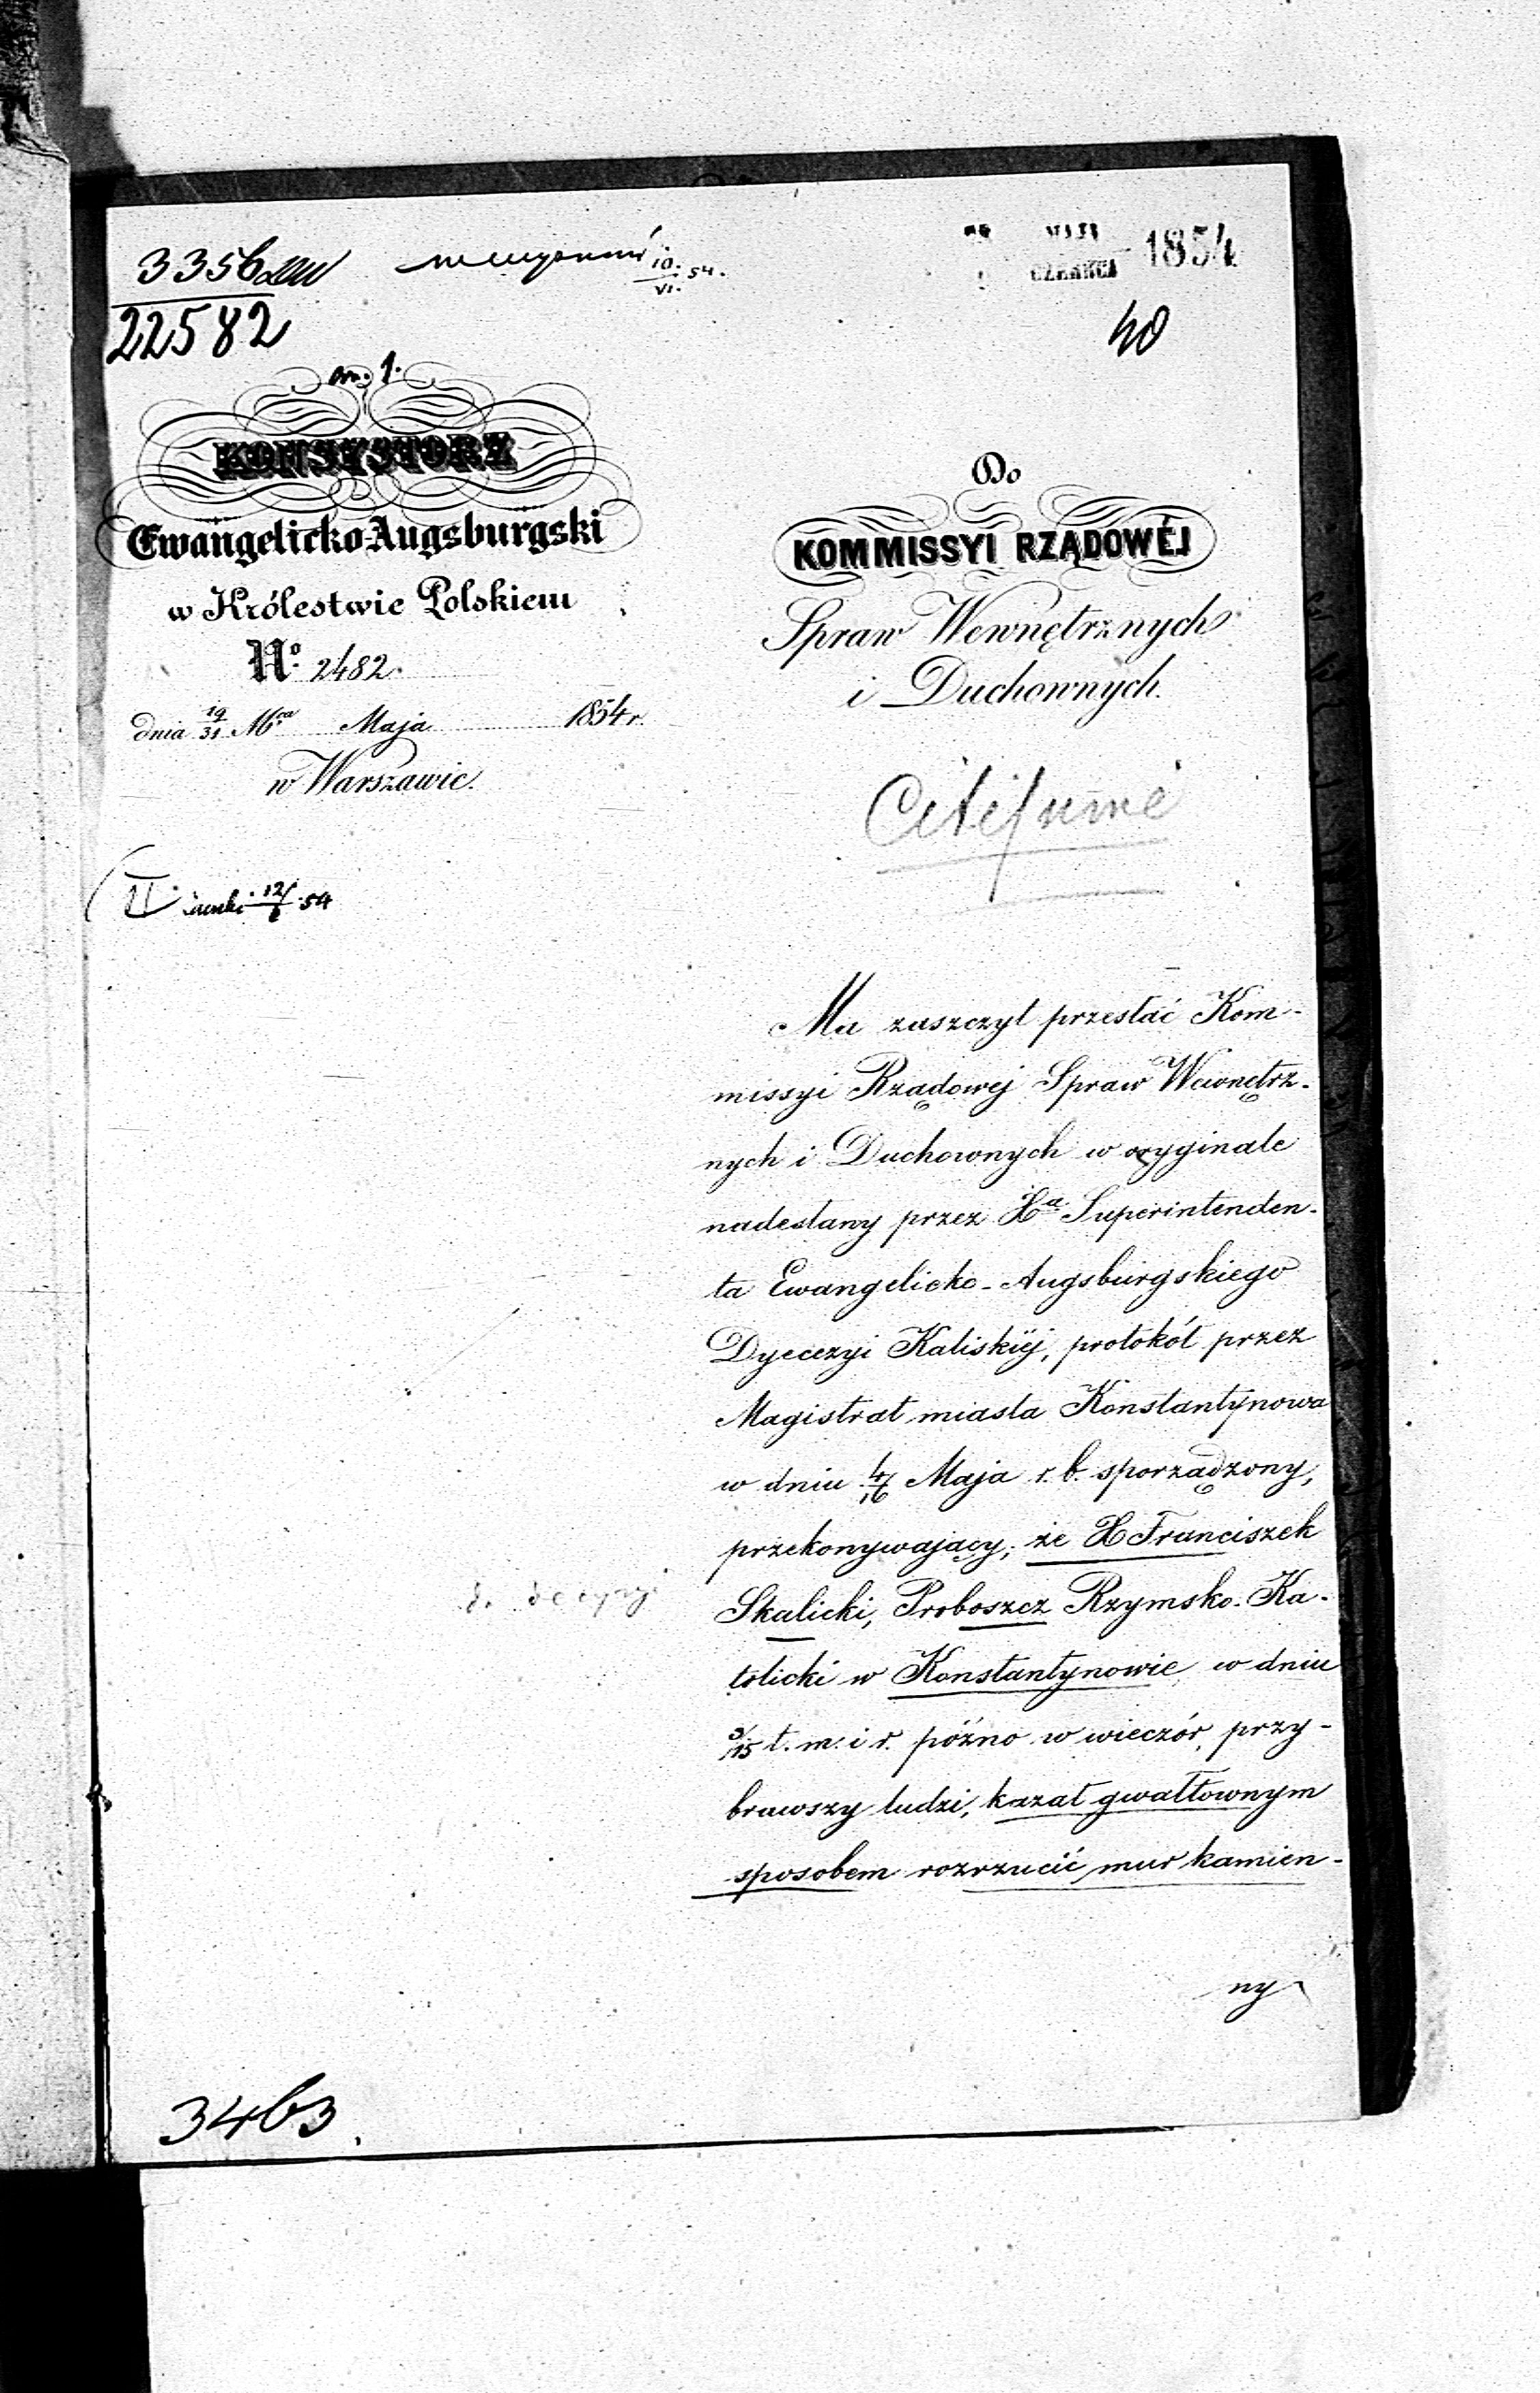 3356
22582
10. VI. 54.
MAJA
CZERWCA 1854
40
KONSYSTORZ
Ewangelicko-Augsburgski
w Królestwie Polskiem
No. 2482.
dnia 19/31 Mca Maja 1854 r.
w Warszawie.
Do
KOMMISSYI RZĄDOWÉJ
Spraw Wewnętrznych
i Duchownych.
II. 12/6 54
Ma zaszczyt przesłać Kom-
missyi Rządowej Spraw Wewnętrz-
nych i Duchownych w oryginale
nadesłany przez Xa Superintenden-
ta Ewangelicko-Augsburgskiego
Dyecezyi Kaliskiéj, protokół przez
Magistrat miasta Konstantynowa
w dniu 4/16 Maja r. b. sporządzony,
przekonywający; że X Franciszek
Skalicki, Proboszcz Rzymsko-Ka-
tolicki w Konstantynowie w dniu
3/15 t. m. i r. późno w wieczór, przy-
brawszy ludzi, kazał gwałtownym
sposobem rozrzucić mur kamien-
ny
do decyzyi
3463